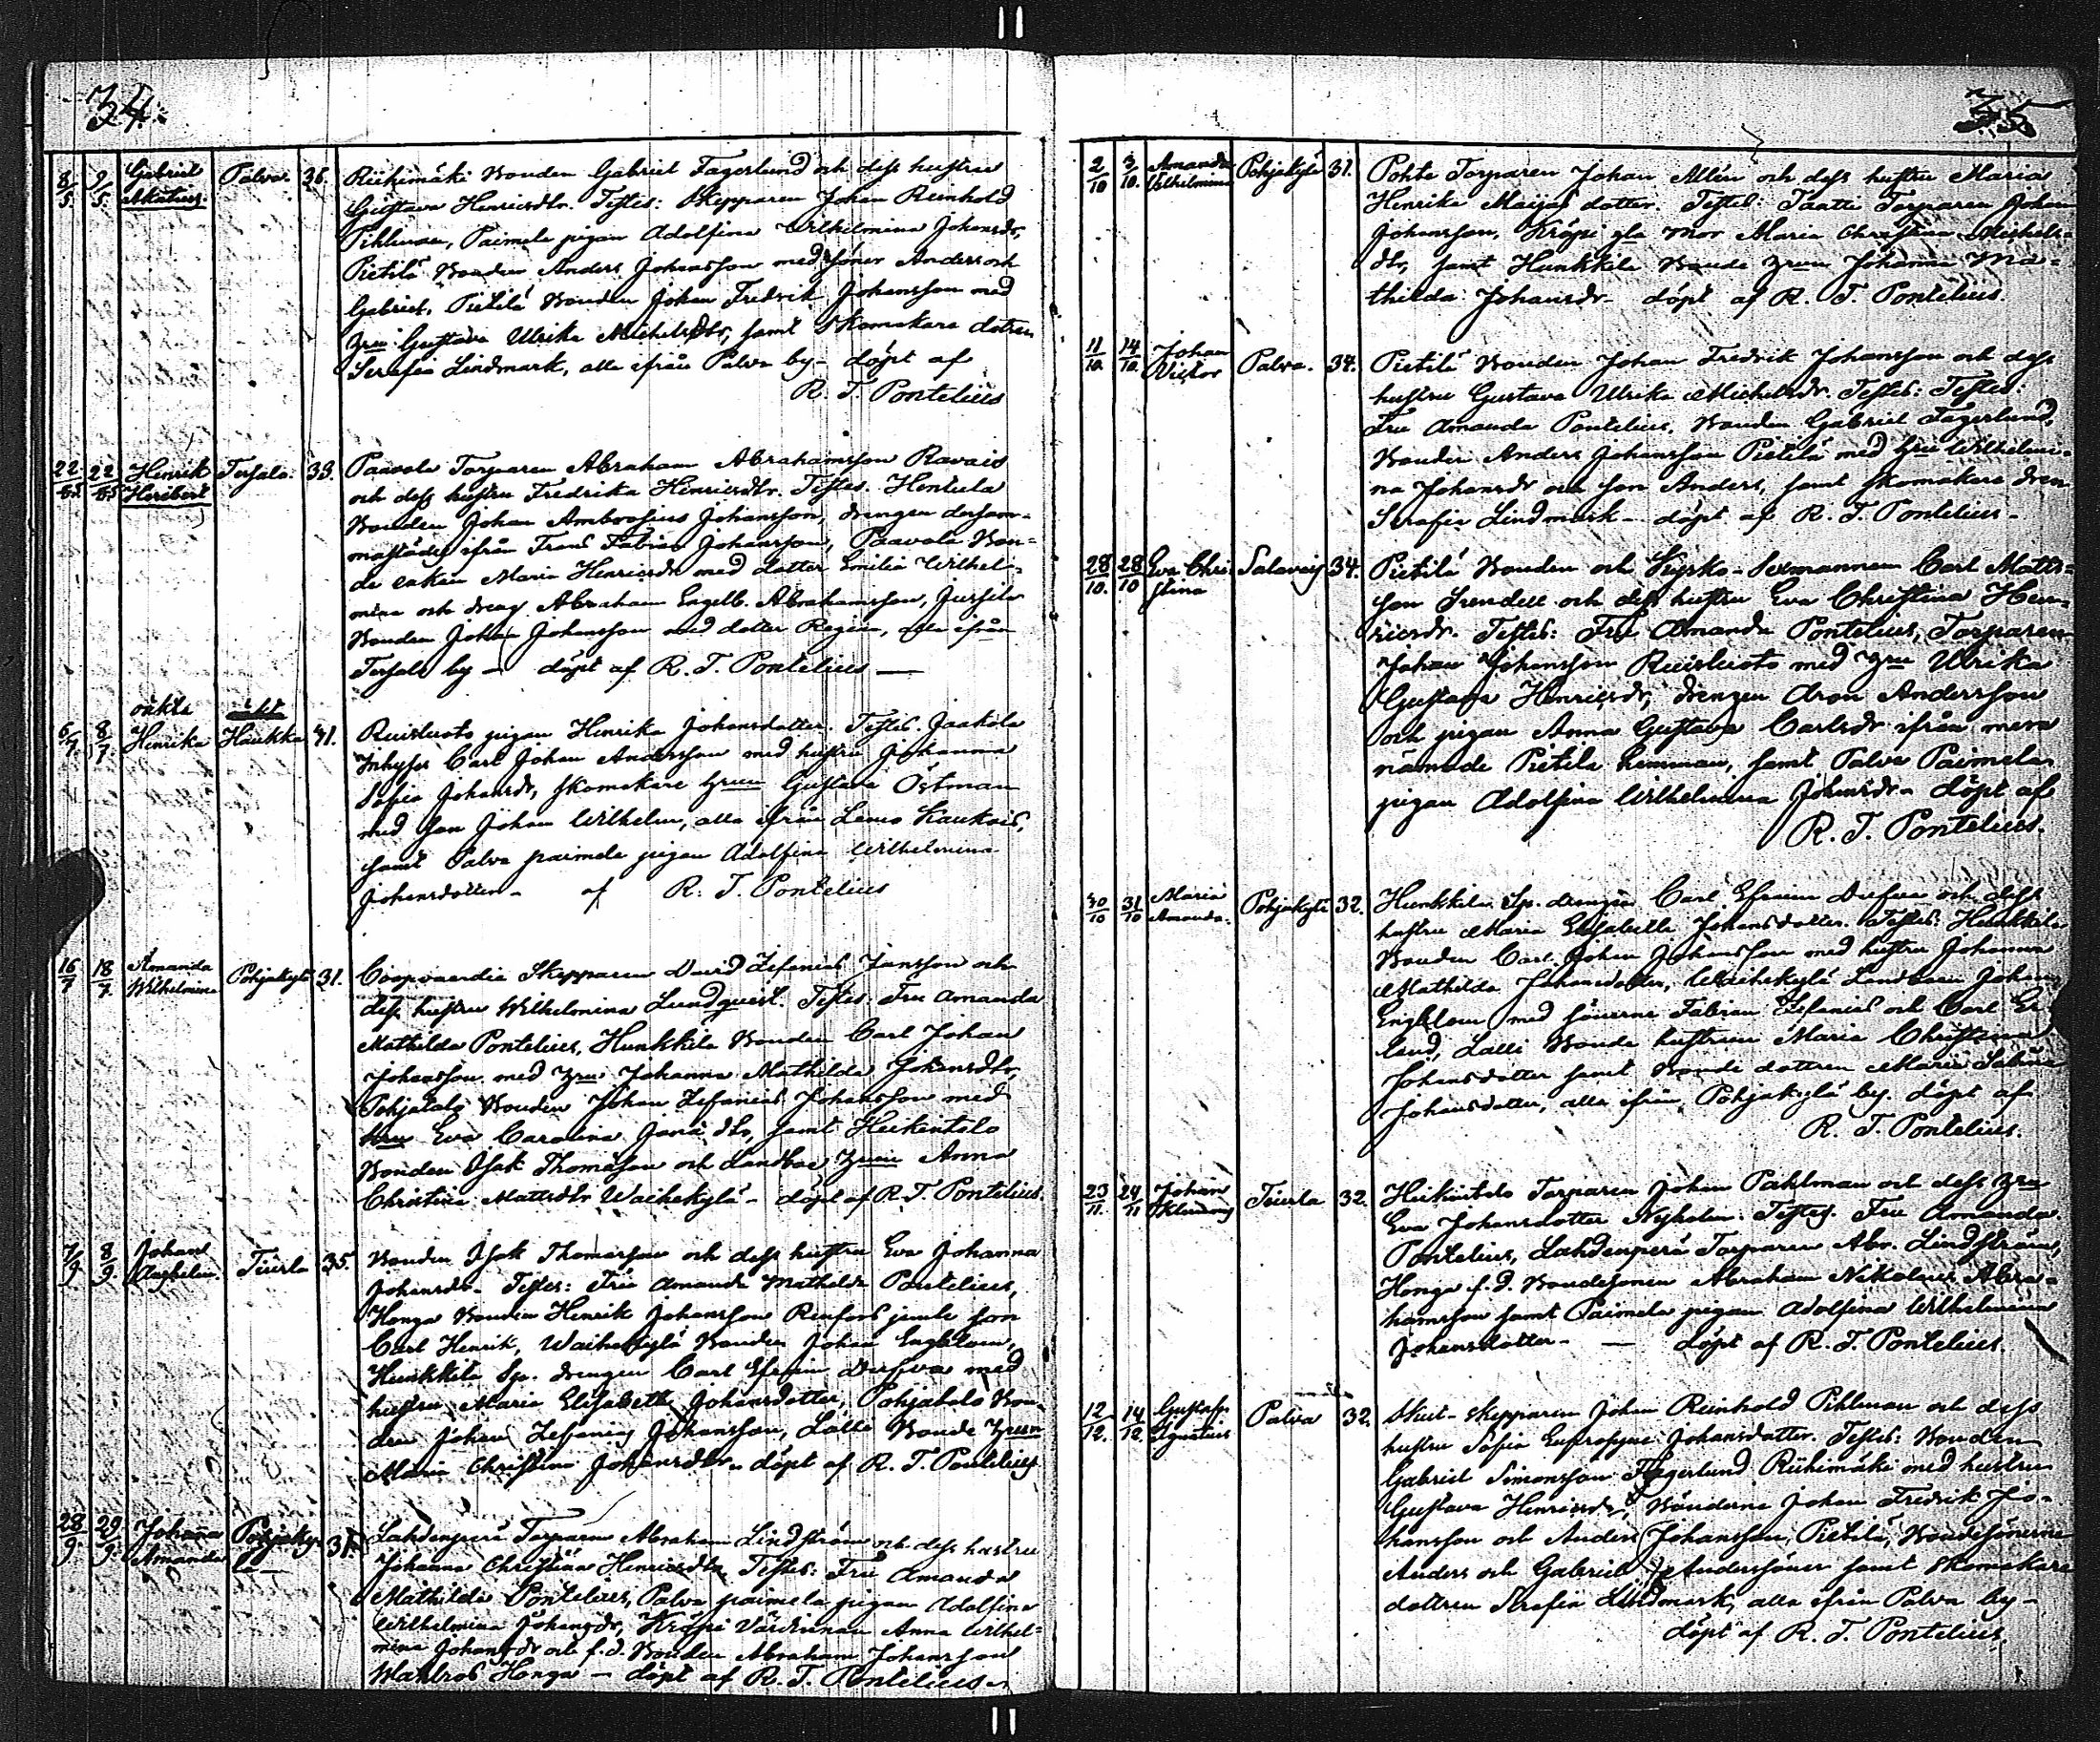 34.
8/5. 9/5. Gabriel Palva. 36. Riihimäki Bonden Gabriel Fagerlund och dess hustru
Gustava Henricsdtr. Testes: Skepparen Johan Reinhold
Pihlman, Paimela pigan Adolfina Wilhelmina Johansdr,
Pietilä Bonden Anders Johansson med söner Anders och
Gabriel, Pietilä Bonden Johan Fredrik Johansson med
hru Gustava Ulrika Michelsdtr, samt Skomakare dotren
Serafia Lindmark, alla ifrån Palva by – döpt af
R. T. Pontelius
22/5. 22/5 Henrik Tersala. 33. Paavola Torparen Abraham Abrahamsson Ravais
Heribert
och dess hustru Fredrika Henricsdtr. Testes. Hentula
Bonden Johan Ambrosius Johansson, drengen dersam-
mastädes ifrån Frans Fabian Johansson, Paavola Bon-
de enkan Maria Henricsdr med dotter Emilia Wilhel-
mina och dreng. Abraham Engelb. Abrahamsson, Jussila
Bonden Johan Johansson med dotter Regina, alla ifrån
Tersala by – döpt af R. T. Pontelius –
oäkta
6/7. 8/7. Henrika Haukka 41. Ruisluoto pigan Henrika Johansdotter. Testes. Jaakola
Inhyses Carl Johan Andersson med hustru Johanna
Sofia Johansdr, skomakare hrun Gustava Östman
med son Johan Wilhelm, alla ifrån Lemo Kaukois,
samt Palva paimela pigan Adolfina Wilhelmina
Johansdotter – af R. T. Pontelius
16/7 18/7. Amanda Wilhelmina Pohjakylä 31. Coopvaerdie Skepparen David Zefanias Jansson och
dess hustru Wilhelmina Lundqvist. Testes: Fru Amanda
Mathilda Pontelius, Hunkkila Bonden Carl Johan
Johansson med hru Johanna Mathilda Johansdtr,
Pohjatalo Bonden Johan Zefanias Johansson med
hru Eva Carolina Jona dtr, samt Heikintalo
Bonden Isak Thomasson och Landboe hrun Anna
Christina Mattsdtr Waihekylä – döpt af R. T. Pontelius.
7/9 8/9. Johan Teersta 35. Bonden Isak Thomasson och dess hustru Eva Johanna
Johansdr. Testes: Fru Amanda Mathilda Pontelius,
Honga Bonden Henrik Johansson Renfors jemte son
Carl Henrik, Waihekylä Bonden Johan Engblom,
Hunkkila Sp. drengen Carl Efraim Dufva med
hustru Maria Elisabeth Johansdotter, Pohjatalo Bon-
den Johan Zefanias Johansson, Lalli Bonde hrun
Maria Christina Johansdtr – döpt af R. T. Pontelius
28/9 29/9. Johanna Amanda Pohjaky-lä 31. Lahdenperä Torparen Abraham Lindström och dess hustru
Johanna Christina Henricsdtr. Testes: Fru Amanda
Mathilda Pontelius, Palva paimela pigan Adolfina
Wilhelmina Johansdr, Kräpi Värdinnan Anna Wilhel-
mina Johansdr och f.d. Bonden Abraham Johansson
Honga – döpt af R. T. Pontelius
35
2/10 3/10. Amanda Wilhelmina Pohjakylä 31. Pohto Torparen Johan Allén och dess hustru Maria
Henrika Maijas dotter. Testes: Taatti Torparen Johan
Johansson, Kräpi gla mor Maria Christina Michels-
dtr, samt Hunkkila Bonde hrun Johanna Ma-
thilda Johansdr – döpt af R. T. Pontelius.
11/10. 14/10. Johan Victor Palva. 34. Pietilä Bonden Johan Fredrik Johansson och dess
hustru Gustava Ulrika Michelsdr. Testes: Testes:
Fru Amanda Pontelius, Bonden Gabriel Fagerlund,
Bonden Anders Johansson Pietilä med hru Wilhelmi-
na Johansdr och son Anders, samt skomakare dren
Serafia Lindmark – döpt af R. T. Pontelius –
28/10. 28/10 Eva Chri-stina Salavais 34. Pietilä Bonden och Kyrko-Sexmannen Carl Matts-
son Grendell och dess hustru Eva Christina Hen-
ricsdr. Testes: Fru Amanda Pontelius, Torparen
Johan Johansson Ruisluoto med hru Ulrika
Gustava Henricsdr, Drengen Aron Andersson
och pigan Anna Gustava Carlsdr ifrån mera
nämnde Pietila hemman, samt Palva Paimela
pigan Adolfina Wilhelmina Johansdr – döpt af
R. T. Pontelius.
30/10 31/10 Maria Amanda. Pohjakylä 32. Hunkkila Sp. drengen Carl Efraim Dufva och dess
hustru Maria Elisabeth Johansdotter. Testes: Hunkkila
Bonden Carl Johan Johansson med hustru Johanna
Mathilda Johansdotter, Waihekylä Landboen Johan
Engblom med sönerna Fabian Zefanias och Carl Er-
land, Lalli Bonde hustrun Maria Christina
Johansdotter samt Bonde dottren Maria Sabina
Johansdotter, alla ifrån Pohjakylä by. döpt af
R. T. Pontelius.
23/11. 24/11 Johan Klemens Teersta 32. Heikintalo Torparen Johan Pahlman och dess hru
Eva Johansdotter Nyholm. Testes. Fru Amanda
Pontelius, Lahdenperä Torparen Abr. Lindström,
Honga f.d. Bondesonen Abraham Nikolaus Abra-
hamsson samt Paimela pigan Adolfina Wilhelmina
Johansdotter – – döpt af R. T. Pontelius.
12/12. 14/12. Gustaf Ignatius Palva 32. Skut-skepparen Johan Reinhold Pihlman och dess
hustru Sofia Eufrosyne Johansdotter. Testes: Bonden
Gabriel Simonsson Fagerlund Riihimäki med hustru
Gustava Henricsdr, Bönderna Johan Fredrik Jo-
hansson och Anders Johansson, Pietilä, Bondesönerne
Anders och Gabriel Anderssöner samt skomakare
dottren Serafia Lindmark, alla ifrån Palva by –
döpt af R. T. Pontelius.